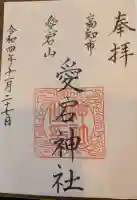 奉拝
高知市
愛宕山
愛宕神社
令和四年十一月二十七日